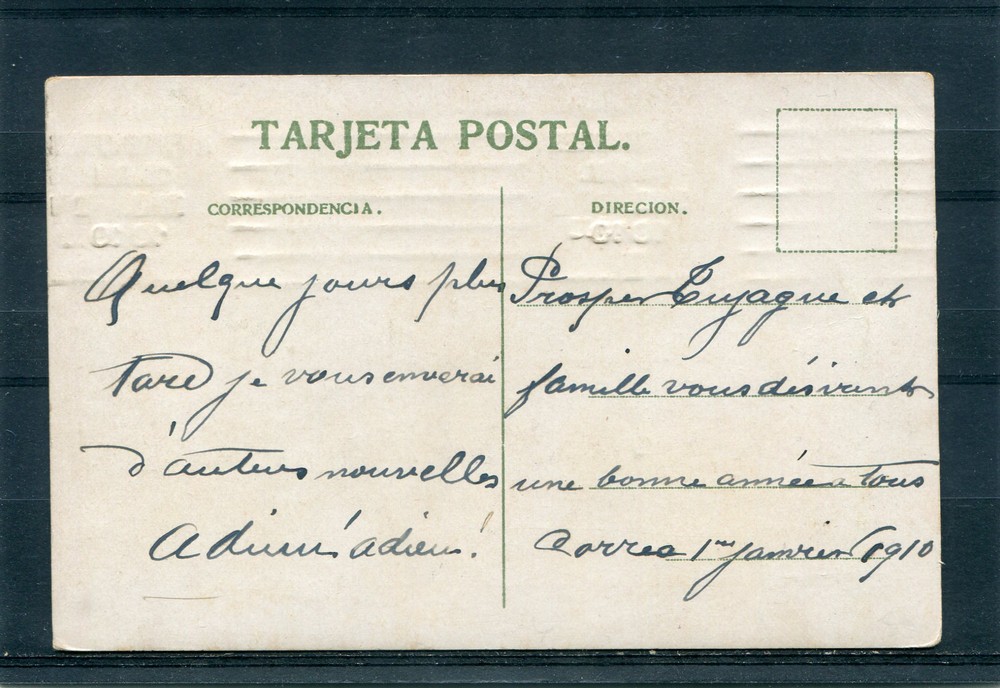 TARJETA POSTAL.
CORRESPONDENCIA.
Quelque jours plus
Tard je vous enverai
d'autres nouvelles
Adieu! adieu!
DIRECION.
Prosper Cujague et
famille vous désirent
une bonne année a tous
Correa 1er janvier 1910